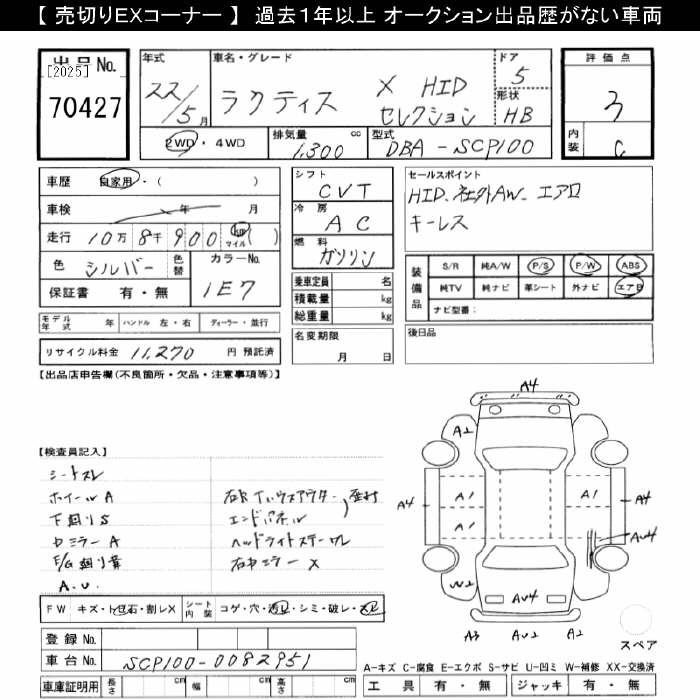 【 売切りEXコーナー 】 過去1年以上 オークション出品歴がない車両
出品No.
[2025]
70427
年式 車名・グレード ドア 5
22/5月 ラクティス X HID セレクション
形状 HB
2WD・4WD 排気量 1,300 cc 型式 DBA-SCP100
評価点
3
内装 C
車歴 自家用・( )
車検 年 月
走行 10万 8千 900 km マイル ( )
色 シルバー 色替 カラーNo. 1E7
保証書 有・無
シフト CVT
冷房 AC
燃料 ガソリン
乗車定員 名
積載量 kg
総重量 kg
名変期限 月 日
セールスポイント
HID、社外AW、エアロ
キーレス
装備品 S/R 純A/W P/S P/W ABS
純TV 純ナビ 革シート 外ナビ エアB
ナビ型番:
後日品
モデル年式 年 ハンドル 左・右 ディーラー・並行
リサイクル料金 11,270 円 預託済
【出品店申告欄(不良箇所・欠品・注意事項等)】
【検査員記入】
シートスレ
ホイールA
下廻りS
ミラーA
A.U.
エンドパネル
ヘッドライトステー
右ミラーX
FW キズ・飛石・割レX シート内装 コゲ・穴・シミ・破レ・スレ
登録No.
車台No. SCP100-0082951
車庫証明用 長さ cm 幅 cm 高さ cm
A4
A2
A4
A1
A1
A1
A4
AU4
W2
AU4
A3
AU2
A2
スペア
A-キズ C-腐食 E-エクボ S-サビ U-凹ミ W-補修 XX-交換済
工具 有・無 ジャッキ 有・無